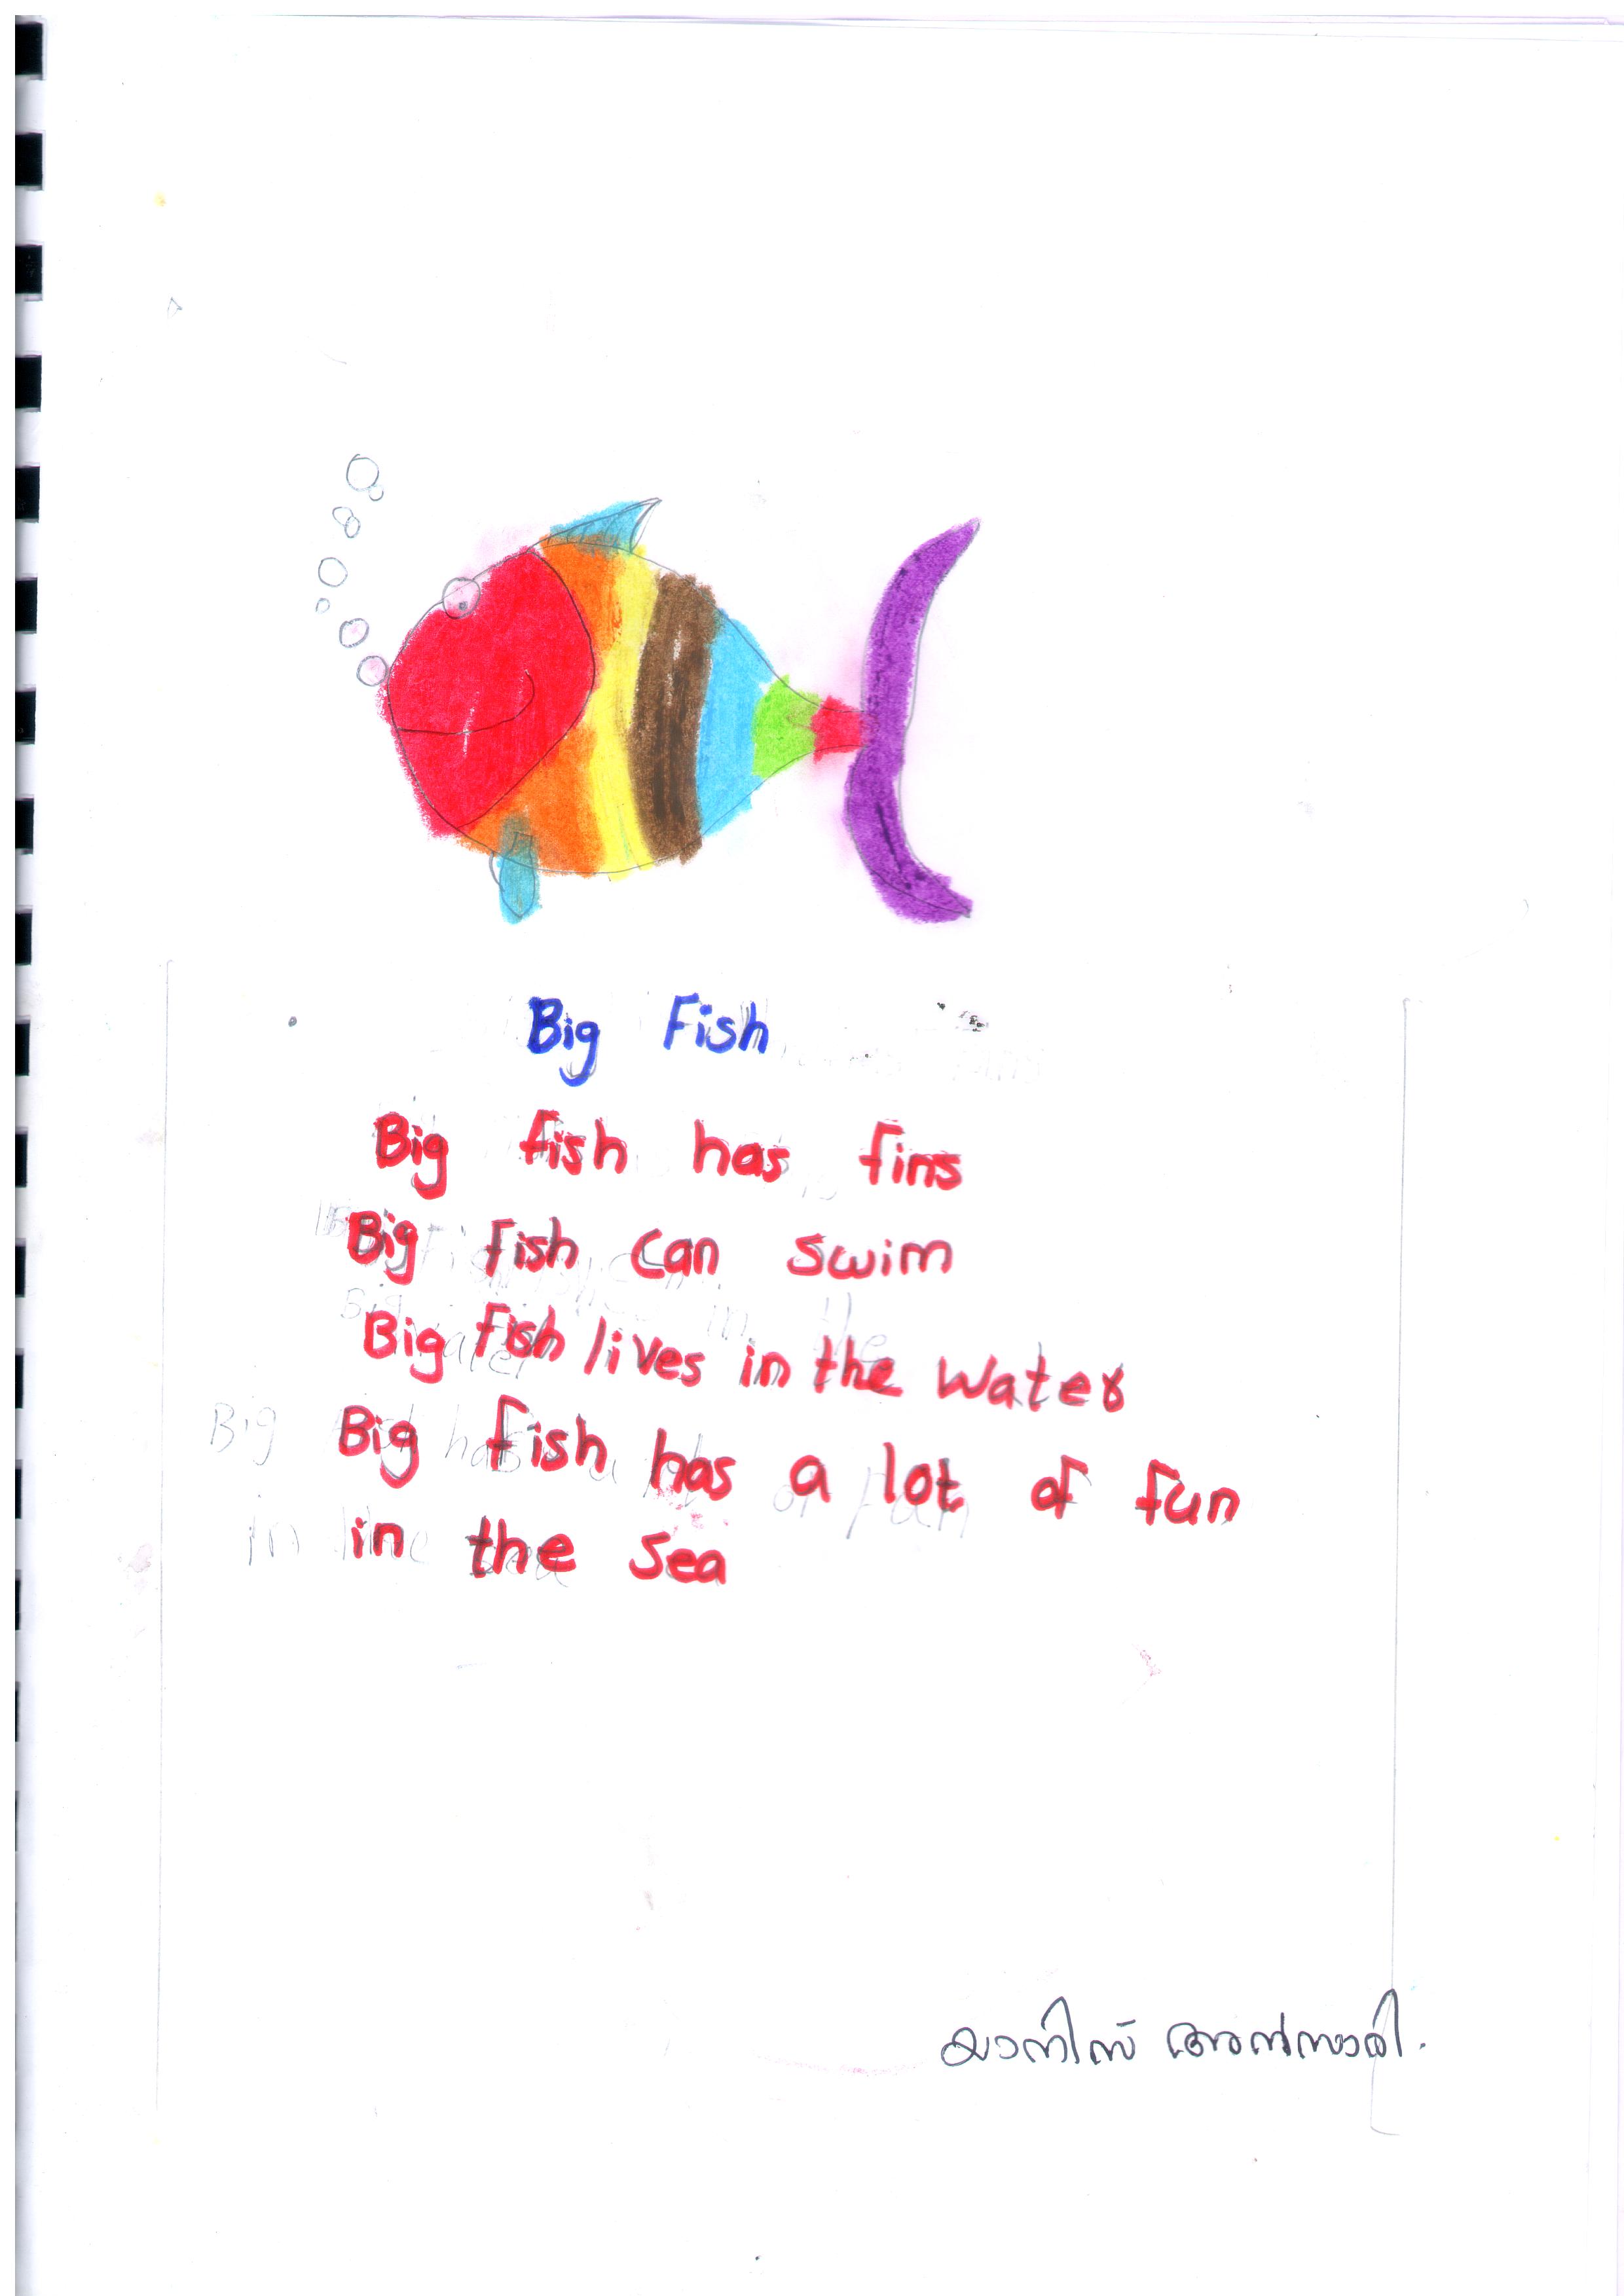 Big Fish
Big fish has fins
Big fish can swim
Big fish lives in the water
Big fish has a lot of fun
in the sea
യാനിസ് അൻസാരി.